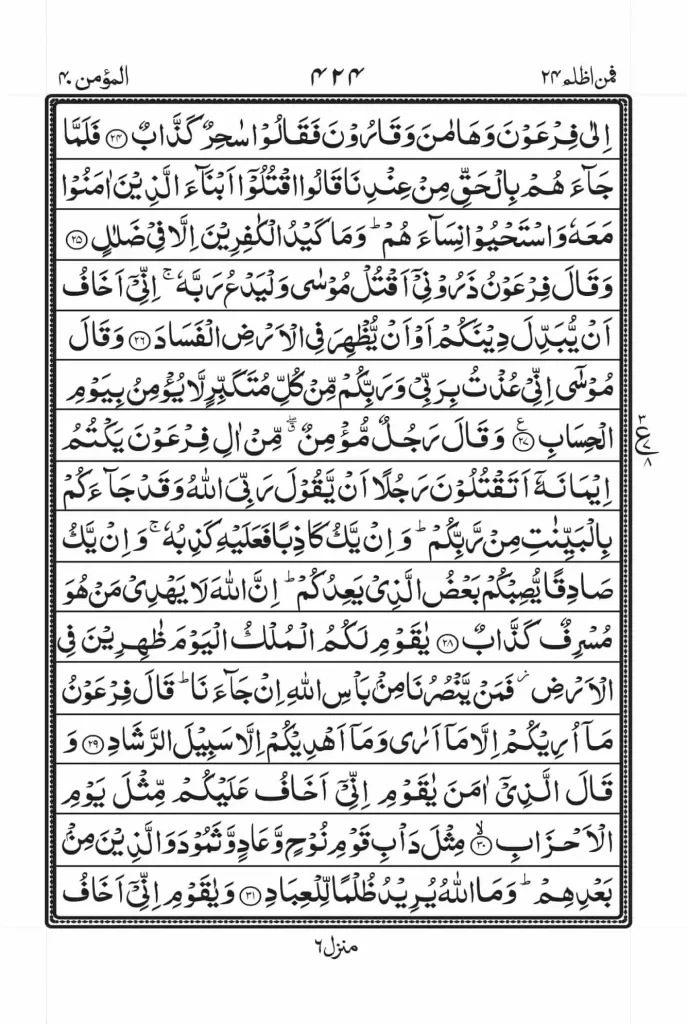 فمن اظلم ۲۴ ۴۲۴ المؤمن ۴۰
اِلٰى فِرْعَوْنَ وَهَامٰنَ وَقَارُوْنَ فَقَالُوْا سٰحِرٌ كَذَّابٌ ﴿۲۴﴾ فَلَمَّا
جَآءَهُمْ بِالْحَقِّ مِنْ عِنْدِنَا قَالُوا اقْتُلُوْۤا اَبْنَآءَ الَّذِيْنَ اٰمَنُوْا
مَعَهٗ وَاسْتَحْيُوْا نِسَآءَهُمْ ؕ وَمَا كَيْدُ الْكٰفِرِيْنَ اِلَّا فِيْ ضَلٰلٍ ﴿۲۵﴾
وَقَالَ فِرْعَوْنُ ذَرُوْنِيْۤ اَقْتُلْ مُوْسٰى وَلْيَدْعُ رَبَّهٗ ۚ اِنِّيْۤ اَخَافُ
اَنْ يُّبَدِّلَ دِيْنَكُمْ اَوْ اَنْ يُّظْهِرَ فِي الْاَرْضِ الْفَسَادَ ﴿۲۶﴾ وَقَالَ
مُوْسٰۤى اِنِّيْ عُذْتُ بِرَبِّيْ وَرَبِّكُمْ مِّنْ كُلِّ مُتَكَبِّرٍ لَّا يُؤْمِنُ بِيَوْمِ
الْحِسَابِ ﴿۲۷﴾ ع وَقَالَ رَجُلٌ مُّؤْمِنٌ ۖۗ مِّنْ اٰلِ فِرْعَوْنَ يَكْتُمُ
۳ ع ۷ ۸
اِيْمَانَهٗۤ اَتَقْتُلُوْنَ رَجُلًا اَنْ يَّقُوْلَ رَبِّيَ اللّٰهُ وَقَدْ جَآءَكُمْ
بِالْبَيِّنٰتِ مِنْ رَّبِّكُمْ ؕ وَاِنْ يَّكُ كَاذِبًا فَعَلَيْهِ كَذِبُهٗ ۚ وَاِنْ يَّكُ
صَادِقًا يُّصِبْكُمْ بَعْضُ الَّذِيْ يَعِدُكُمْ ؕ اِنَّ اللّٰهَ لَا يَهْدِيْ مَنْ هُوَ
مُسْرِفٌ كَذَّابٌ ﴿۲۸﴾ يٰقَوْمِ لَكُمُ الْمُلْكُ الْيَوْمَ ظٰهِرِيْنَ فِي
الْاَرْضِ ؗ فَمَنْ يَّنْصُرُنَا مِنْۢ بَاْسِ اللّٰهِ اِنْ جَآءَنَا ؕ قَالَ فِرْعَوْنُ
مَاۤ اُرِيْكُمْ اِلَّا مَاۤ اَرٰى وَمَاۤ اَهْدِيْكُمْ اِلَّا سَبِيْلَ الرَّشَادِ ﴿۲۹﴾ وَ
قَالَ الَّذِيْۤ اٰمَنَ يٰقَوْمِ اِنِّيْۤ اَخَافُ عَلَيْكُمْ مِّثْلَ يَوْمِ
الْاَحْزَابِ ۙ﴿۳۰﴾ مِثْلَ دَاْبِ قَوْمِ نُوْحٍ وَّعَادٍ وَّثَمُوْدَ وَالَّذِيْنَ مِنْۢ
بَعْدِهِمْ ؕ وَمَا اللّٰهُ يُرِيْدُ ظُلْمًا لِّلْعِبَادِ ﴿۳۱﴾ وَيٰقَوْمِ اِنِّيْۤ اَخَافُ
منزل ۶